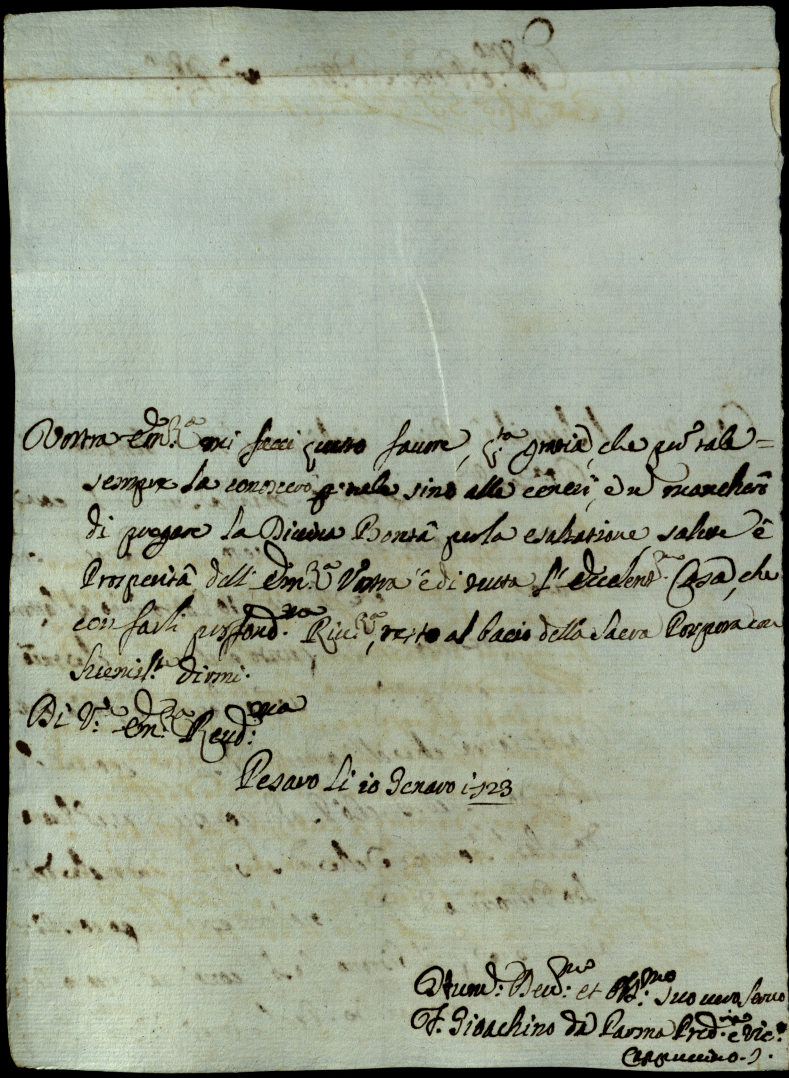 Vostra Em.za mi facci questo favore, q.sta gratia, che per tale =
sempre la conoscerò p. tale sino alle ceneri, è n mancherò
di pregare la Divina Bontà per la esaltatione salute è
Prosperità dell' Em.za Vostra è di tutta l' Eccelent.ma Casa, che
con farli profond.ma Riv.za, resto al bacio della Sacra Porpora con
dirmi.
Di V.a Em.za Reud.ma
Pesaro li 10 Genaro 1723
Humil: Deu.mo: et Obl.mo: suo vero Servo
F. Gioachino da Parma Pred.re è Vic.o
Capuccino.